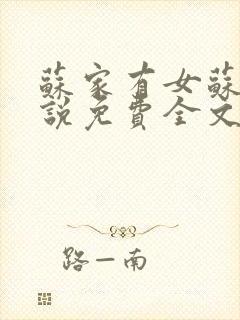 蘇家有女蘇
說免費全文
路一南